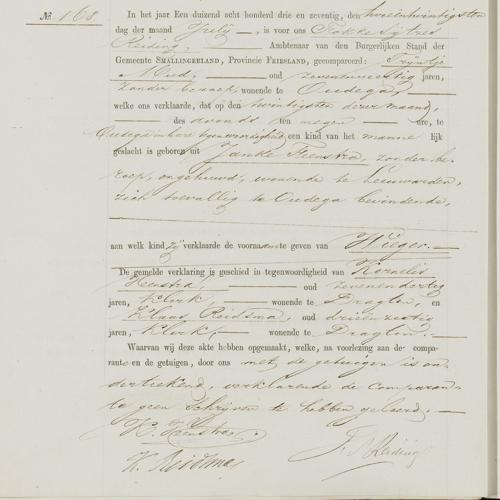 № 168.
In het jaar Een duizend acht honderd drie en zeventig, den tweeëntwintigsten
dag der maand July, is voor ons Fokke Sytzes
Reiding, Ambtenaar van den Burgerlijken Stand der
Gemeente SMALLINGERLAND, Provincie FRIESLAND, gecompareerd: Trijntje
Mud, oud zeventig jaren,
zonder beroep, wonende te Oudega,
welke ons verklaarde, dat op den twintigsten dezer maand,
des avonds ten negen ure, te
Oudega in hare tegenwoordigheid een kind van het manne lijk
geslacht is geboren uit Janke Feenstra, zonder be-
roep, ongehuwd, wonende te Leeuwarden,
zich toevallig te Oudega bevindende,
aan welk kind zij verklaarde de voornaam te geven van Wieger.
De gemelde verklaring is geschied in tegenwoordigheid van Kornelis
Heenstra, oud zevenendertig
jaren, klerk, wonende te Dragten, en
Klaas Reidsma, oud drieënzestig
jaren, klerk, wonende te Dragten.
Waarvan wij deze akte hebben opgemaakt, welke, na voorlezing aan de compa-
rante en de getuigen, door ons met de getuigen is on-
derteekend, verklarende de comparan-
te geen schrijven te hebben geleerd.
K. Heenstra
K. Reidsma
F. S. Reiding